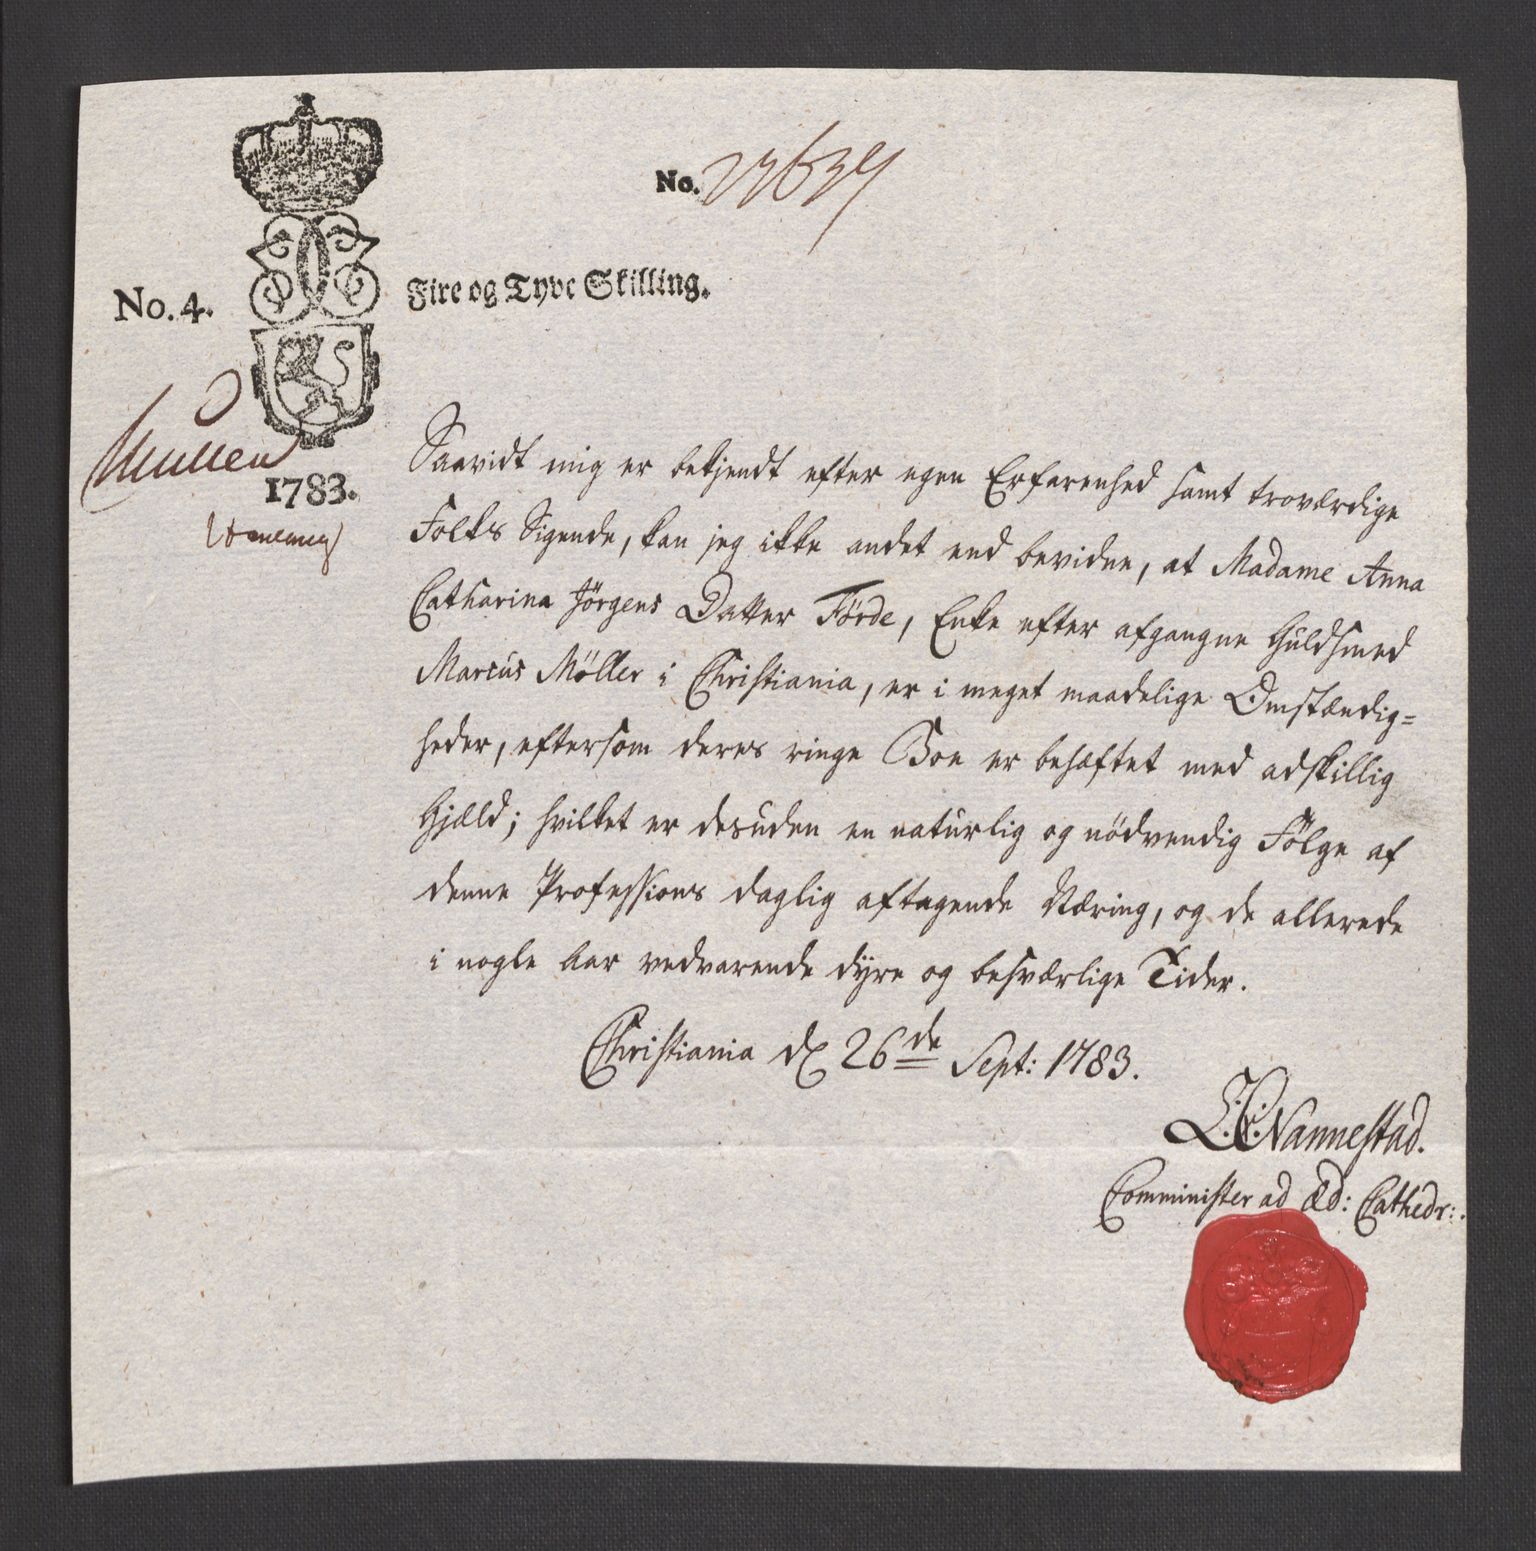 No. 22634
No. 4.
Fire og Tyve Skilling.
1783.
Saavidt mig er bekjendt efter egen Erfarenhed samt troværdige
Folks Sigende, kan jeg ikke andet end bevidne, at Madame Anna
Catharina Jörgens Datter Förde, Enke efter afgangne Guldsmed
Marcus Möller i Christiania, er i meget maadelige Omstændig=
heder, eftersom deres ringe Boe er behæftet med adskillig
Gjæld; hvilket er desuden en naturlig og nödvendig Fölge af
denne Professions daglig aftagende Næring, og de allerede
i nogle Aar vedvarende dyre og besværlige Tider.
Christiania d. 26de Sept: 1783.
Nannestad.
Comminister ad Æd: Cathedr:.